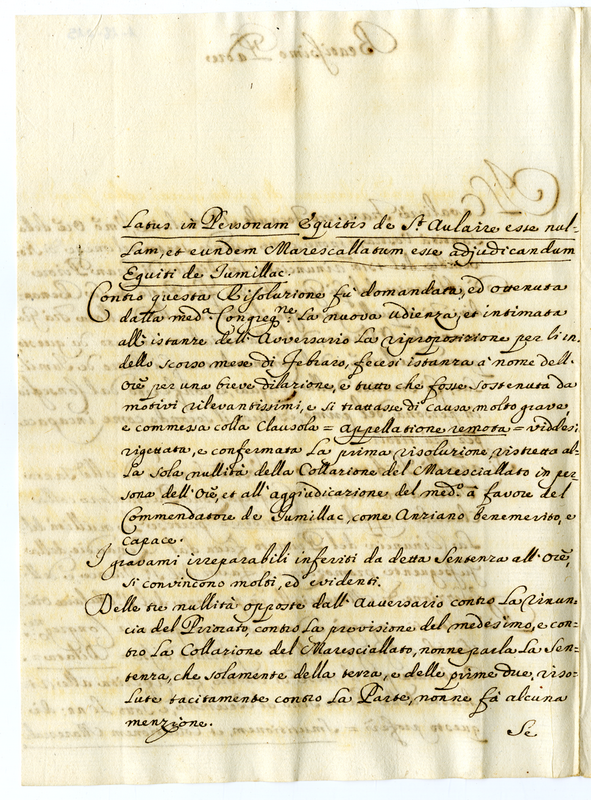 Latus in Personam Equitis de St. Aulaire esse nul-
lam, et eundem Marescallatum esse adjudicandum
Equiti de Jumillac.
Contro questa Risoluzione fù domandata, ed ottenuta
dalla med.a Congreg.ne la nuova udienza, et intimata
all'istanze dell'Avversario la riproposizione per li
dello scorso mese di Febraro, fecesi istanza à nome dell'
Ore per una breve dilazione, e tutto che fosse sostenuta da
motivi rilevantissimi, e si trattasse di causa molto grave,
e commessa colla Clausola = Appellatione remota = viddesi
rigettata, e confermata la prima risoluzione ristretta al-
la sola nullità della Collazione del Maresciallato in per-
sona dell'Ore, et all'aggiudicazione del med.o à favore del
Commendatore de Jumillac, come Anziano benemerito, e
capace.
I gravami irreparabili inferiti da detta Sentenza all'Ore,
si convincono molti, ed evidenti.
Delle tre nullità opposte dall'Avversario contro la rinun-
cia del Priorato, contro la provisione del medesimo, e con-
tro la Collazione del Maresciallato, nonne parla la Sen-
tenza, che solamente della terza, e delle prime due, riso-
lute tacitamente contro la Parte, nonne fà alcuna
menzione.
Se